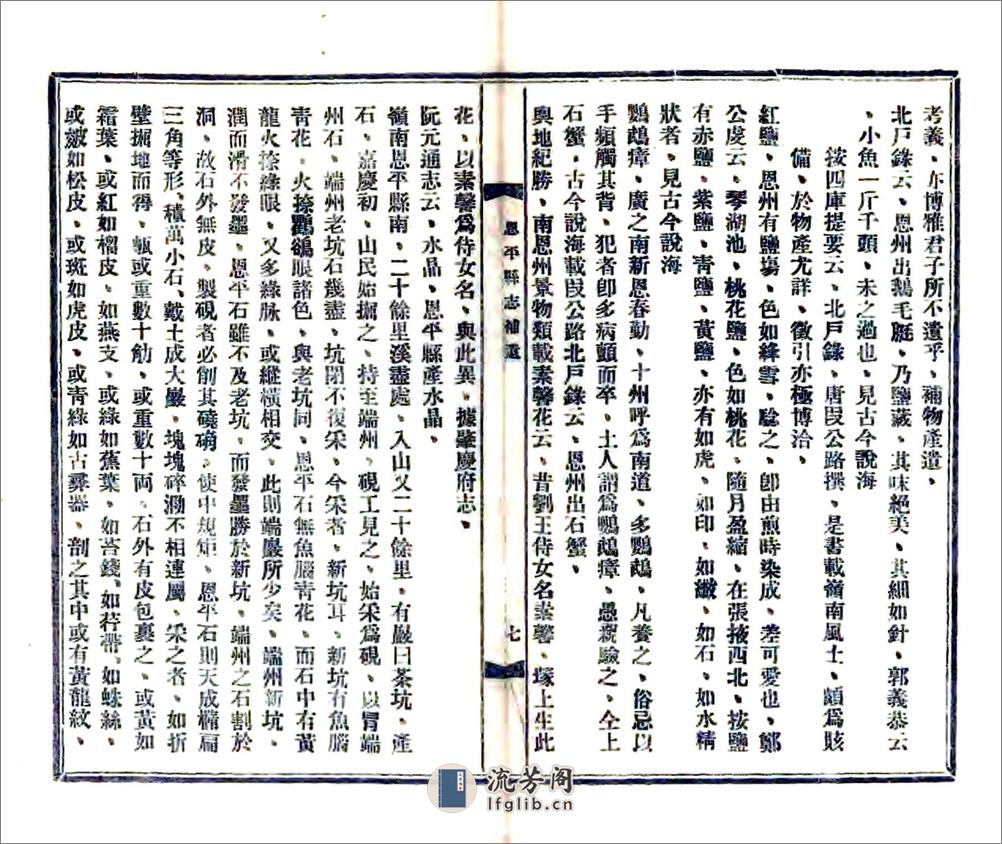 考義、亦博雅君子所不遺乎、補物產遺、
北戶錄云、恩州出鵝毛脡、乃鹽藏、其味絕美、其細如針、郭義恭云
、小魚一斤千頭、未之過也、見古今說海
按四庫提要云、北戶錄、唐段公路撰、是書載嶺南風土、頗爲賅
備、於物產尤詳、徵引亦極博洽、
紅鹽、恩州有鹽塲、色如絳雪、驗之、卽由煎時染成、差可愛也、鄭
公虔云、琴湖池、桃花鹽、色如桃花、隨月盈縮、在張掖西北、按鹽
有赤鹽、紫鹽、靑鹽、黃鹽、亦有如虎、如印、如繖、如石、如水精
狀者、見古今說海
鸚鵡瘴、廣之南新恩春勤、十州呼爲南道、多鸚鵡、凡養之、俗忌以
手頻觸其背、犯者卽多病顫而卒、土人謂爲鸚鵡瘴、愚親驗之、仝上
石蟹、古今說海載段公路北戶錄云、恩州出石蟹、
輿地紀勝、南恩州景物類載素馨花云、昔劉王侍女名素馨、塚上生此
恩平縣志補遺
七
花、以素馨爲侍女名、與此異、據肇慶府志、
阮元通志云、水晶、恩平縣產水晶、
嶺南恩平縣南、二十餘里溪盡處、入山又二十餘里、有巖曰茶坑、產
石、嘉慶初、山民始掘之、持至端州、硯工見之、始采爲硯、以冒端
州石、端州老坑石幾盡、坑閉不復采、今采者、新坑耳、新坑有魚腦
靑花、火捺鸜鵒眼諸色、與老坑同、恩平石無魚腦靑花、而石中有黃
龍火捺綠眼、又多綠脉、或縱橫相交、此則端巖所少矣、端州新坑、
潤而滑不發墨、恩平石雖不及老坑、而發墨勝於新坑、端州之石割於
洞、故石外無皮、製硯者必削其磽确、使中規矩、恩平石則天成橢扁
三角等形、積萬小石、戴土成大巖、塊塊碎泐不相連屬、采之者、如折
壁掘地而得、瓴或重數十觔、或重數十兩、石外有皮包裹之、或黃如
霜葉、或紅如榴皮、如燕支、或綠如蕉葉、如苔錢、如荇帶、如蛛絲、
或皴如松皮、或斑如虎皮、或靑綠如古彝器、剖之其中或有黃龍紋、
流芳阁
lfglib.cn